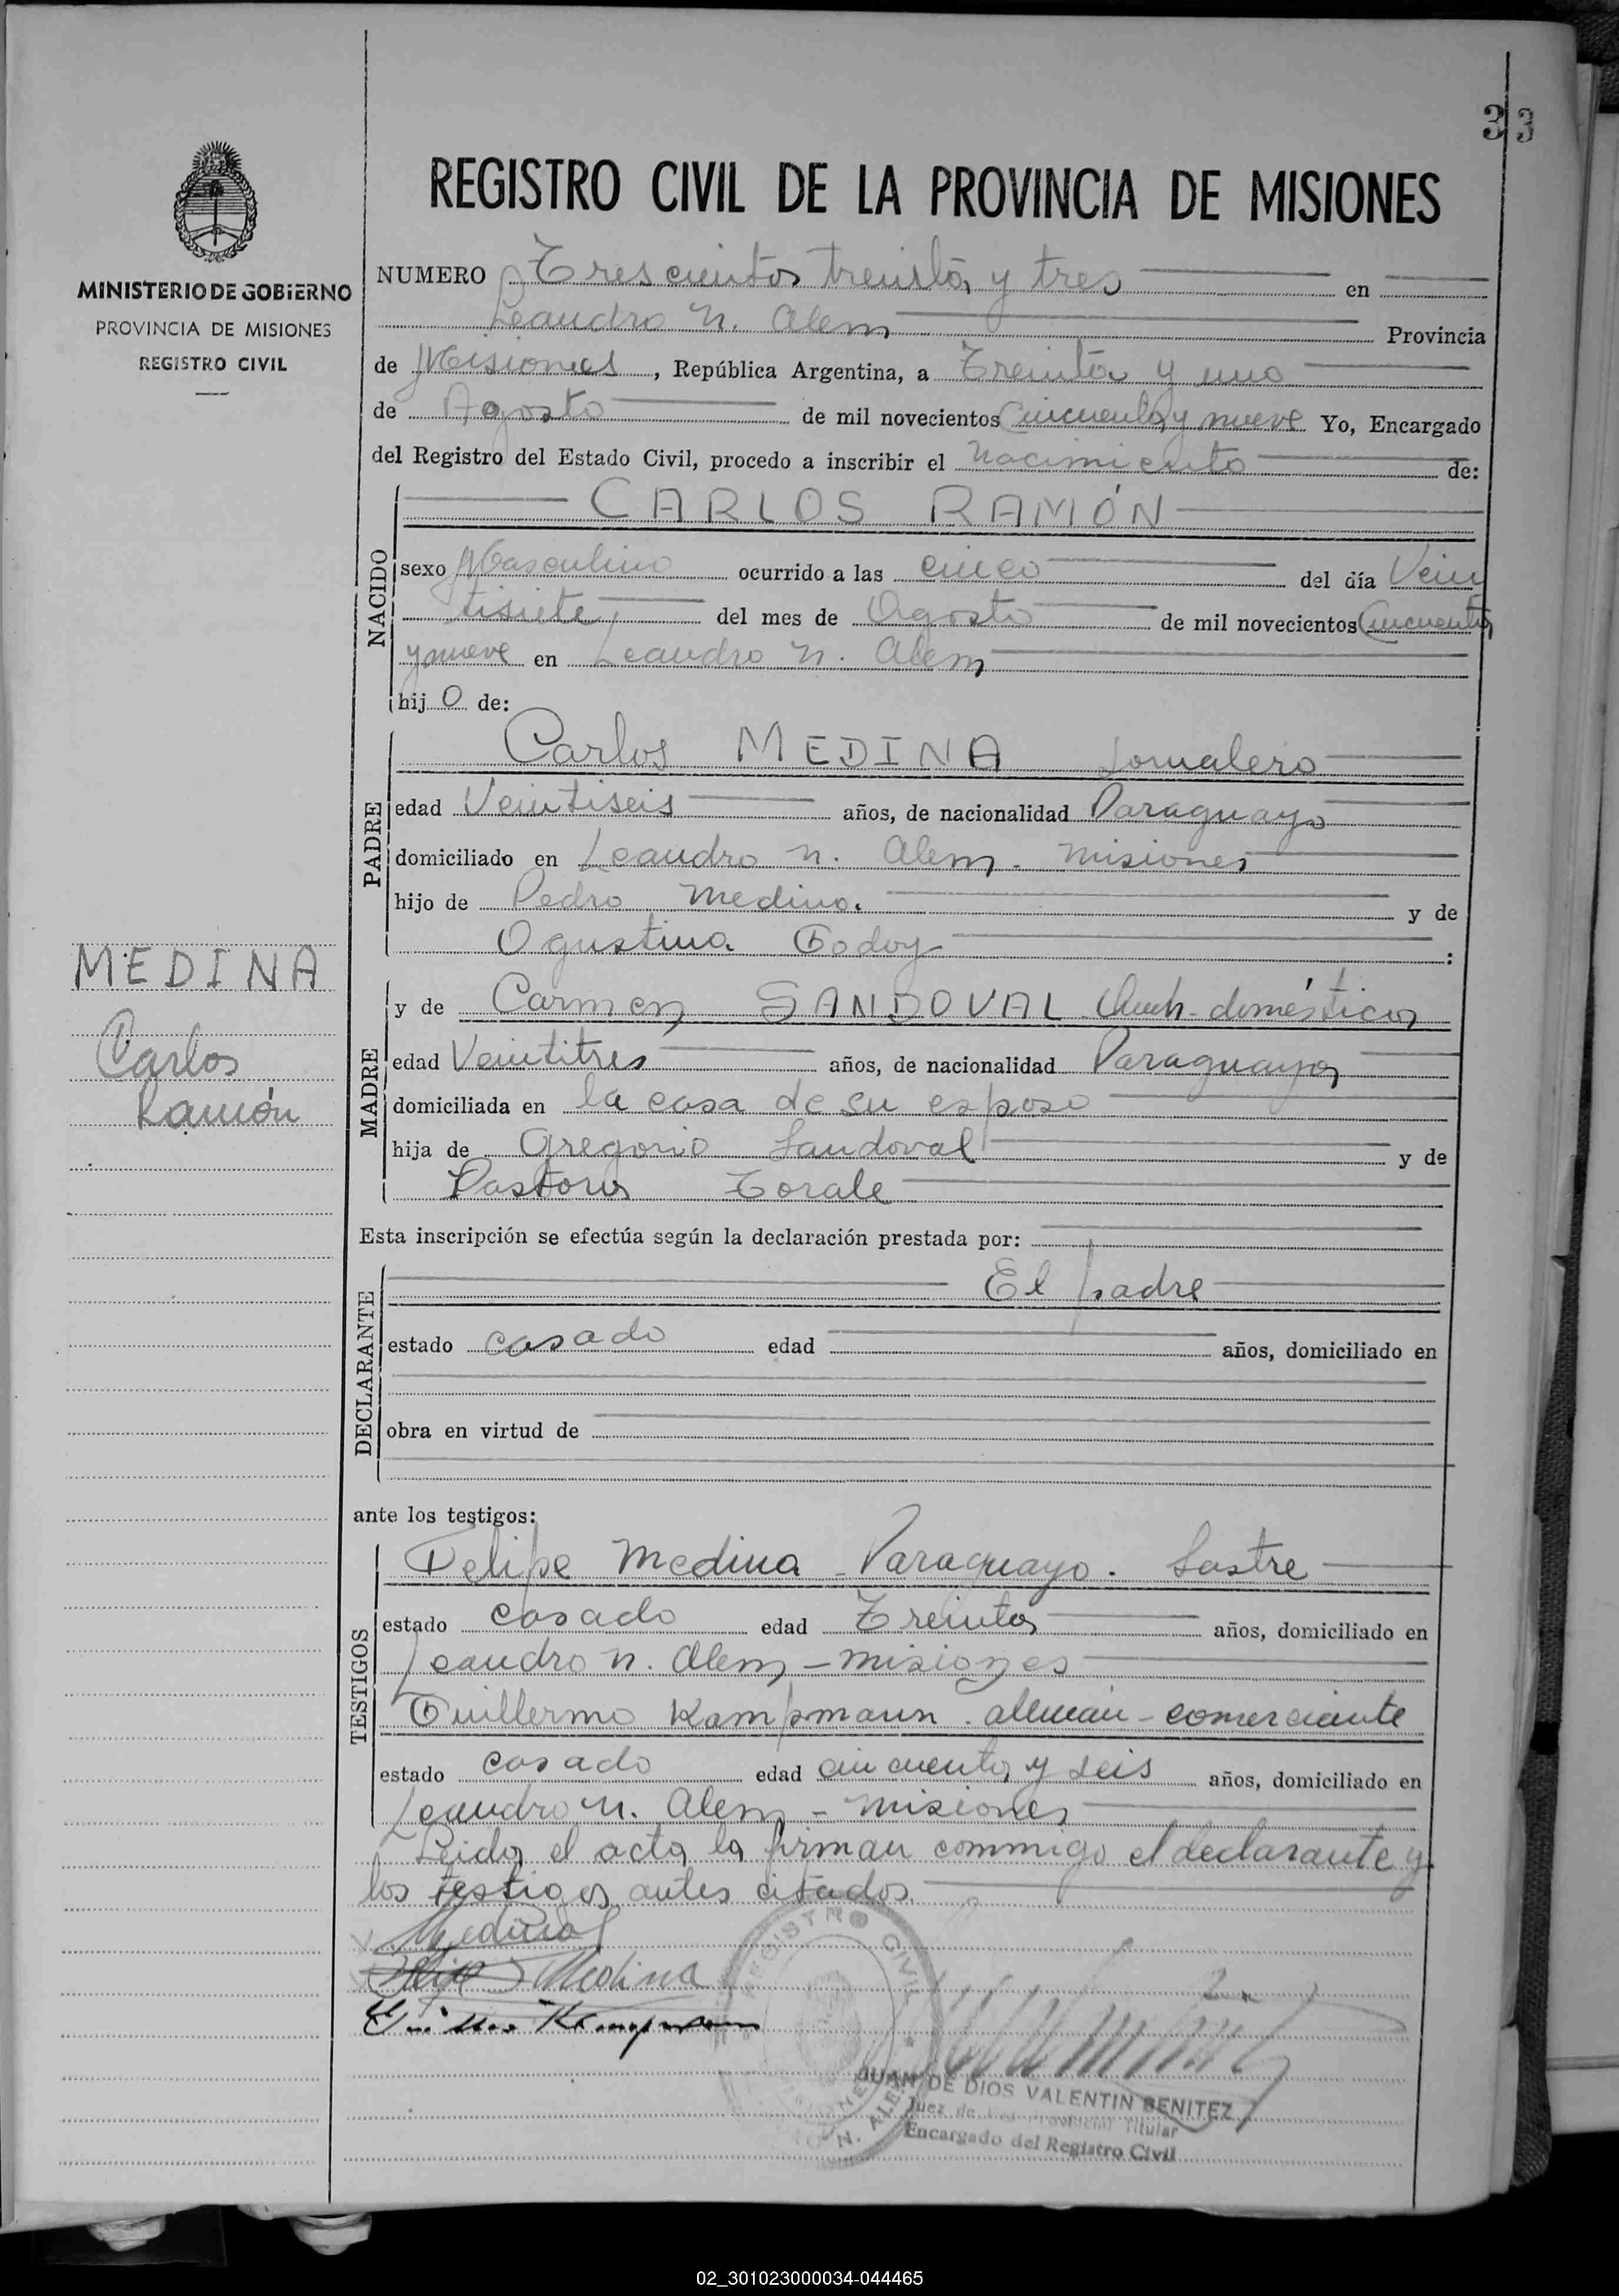 33
REGISTRO CIVIL DE LA PROVINCIA DE MISIONES
MINISTERIO DE GOBIERNO
PROVINCIA DE MISIONES
REGISTRO CIVIL
NUMERO Trescientos treinta y tres en
Leandro N. Alem Provincia
de Misiones, República Argentina, a Treinta y uno
de Agosto de mil novecientos Cincuenta y nueve Yo, Encargado
del Registro del Estado Civil, procedo a inscribir el Nacimiento de:
NACIDO
CARLOS RAMÓN
sexo Masculino ocurrido a las cinco del día Vein
tisiete del mes de Agosto de mil novecientos Cincuenta
y nueve en Leandro N. Alem
hijo de:
PADRE
Carlos MEDINA Jornalero
edad Veintiseis años, de nacionalidad Paraguayo
domiciliado en Leandro N. Alem - Misiones
hijo de Pedro Medina. y de
Agustina Godoy :
MEDINA
Carlos
Ramón
MADRE
y de Carmen SANDOVAL Queh. doméstica
edad Veintitres años, de nacionalidad Paraguaya
domiciliada en la casa de su esposo
hija de Gregorio Sandoval y de
Pastora Torale
Esta inscripción se efectúa según la declaración prestada por:
DECLARANTE
El padre
estado casado edad años, domiciliado en
obra en virtud de
ante los testigos:
TESTIGOS
Felipe Medina - Paraguayo. Sastre
estado casado edad Treinta años, domiciliado en
Leandro N. Alem - Misiones
Guillermo Kampmann. alleman - comerciante
estado casado edad cincuenta y seis años, domiciliado en
Leandro N. Alem - Misiones
Leida el acta la firman commigo el declarante y
los testigos antes citados.
Medina
Felipe Medina
Guillermo Kampmann
REGISTRO CIVIL
N. ALEM
JUAN DE DIOS VALENTIN BENITEZ
Juez de Paz Provincial Titular
Encargado del Registro Civil
02_301023000034-044465